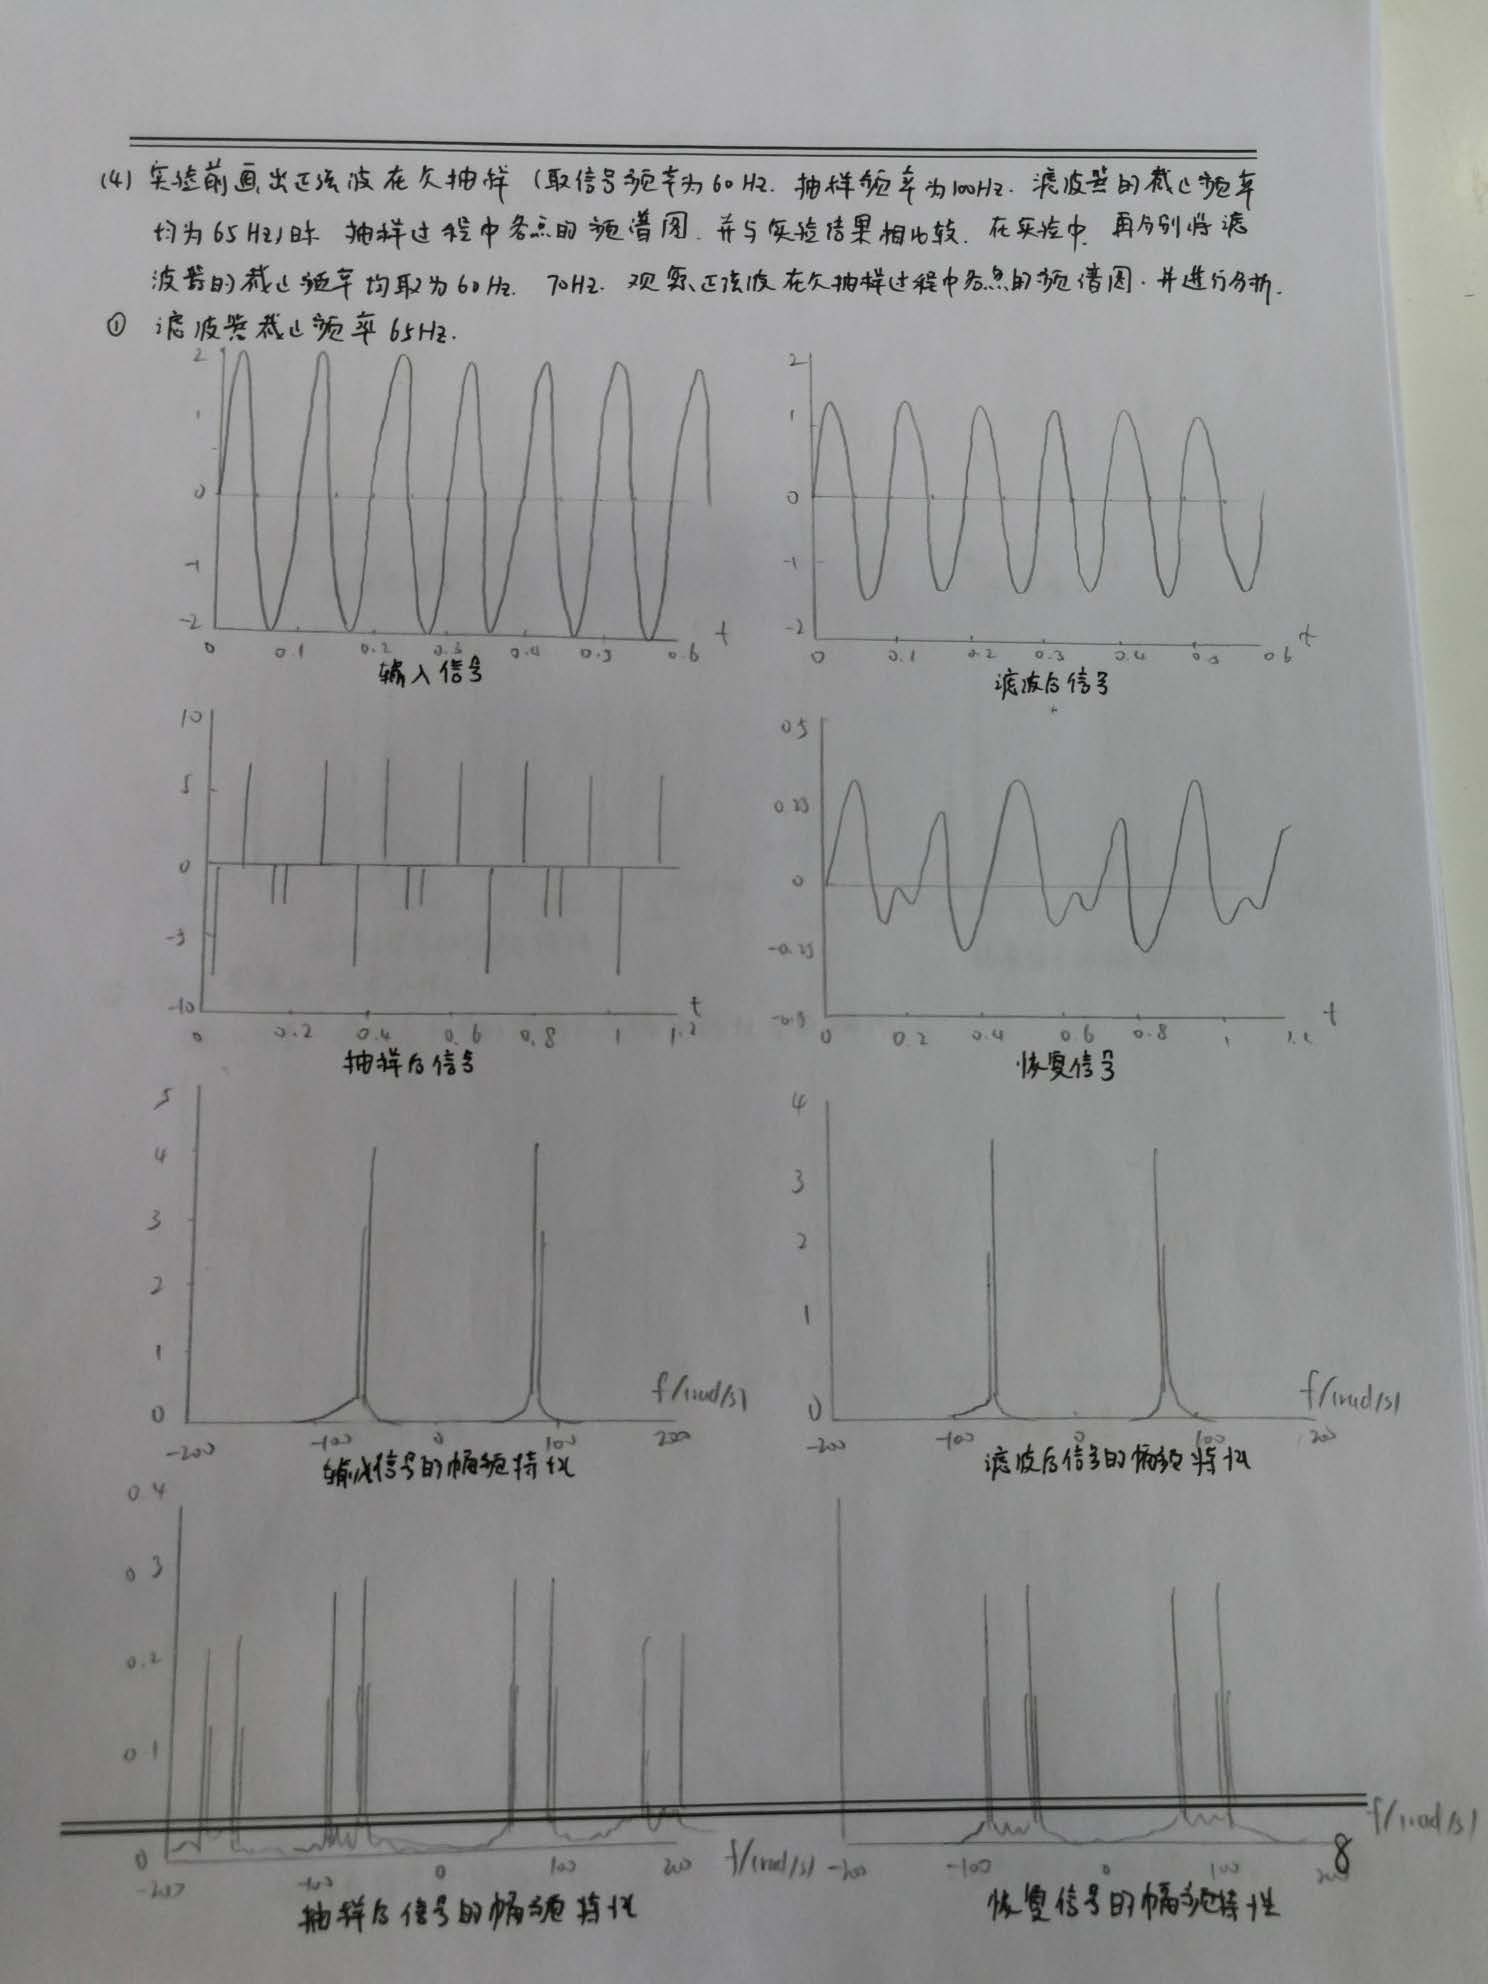 (4) 实验前画出正弦波在欠抽样 (取信号频率为60Hz. 抽样频率为100Hz. 滤波器的截止频率
均为65Hz)时 抽样过程中各点的频谱图. 并与实验结果相比较. 在实验中. 再分别将滤
波器的截止频率均取为60Hz. 70Hz. 观察正弦波在欠抽样过程中各点的频谱图. 并进行分析.
① 滤波器截止频率65Hz.
2 1 0 -1 -2
0 0.1 0.2 0.3 0.4 0.5 0.6 t
输入信号
2 1 0 -1 -2
0 0.1 0.2 0.3 0.4 0.5 0.6 t
滤波后信号
10 5 0 -5 -10
0 0.2 0.4 0.6 0.8 1 1.2 t
抽样后信号
0.5 0.25 0 -0.25 -0.5
0 0.2 0.4 0.6 0.8 1 t
恢复信号
5 4 3 2 1 0
-200 -100 0 100 200 f/(rad/s)
输入信号的幅频特性
4 3 2 1 0
-200 -100 0 100 200 f/(rad/s)
滤波后信号的幅频特性
0.4 0.3 0.2 0.1 0
-200 -100 0 100 200 f/(rad/s)
抽样后信号的幅频特性
-200 -100 0 100 200 f/(rad/s)
恢复信号的幅频特性
8